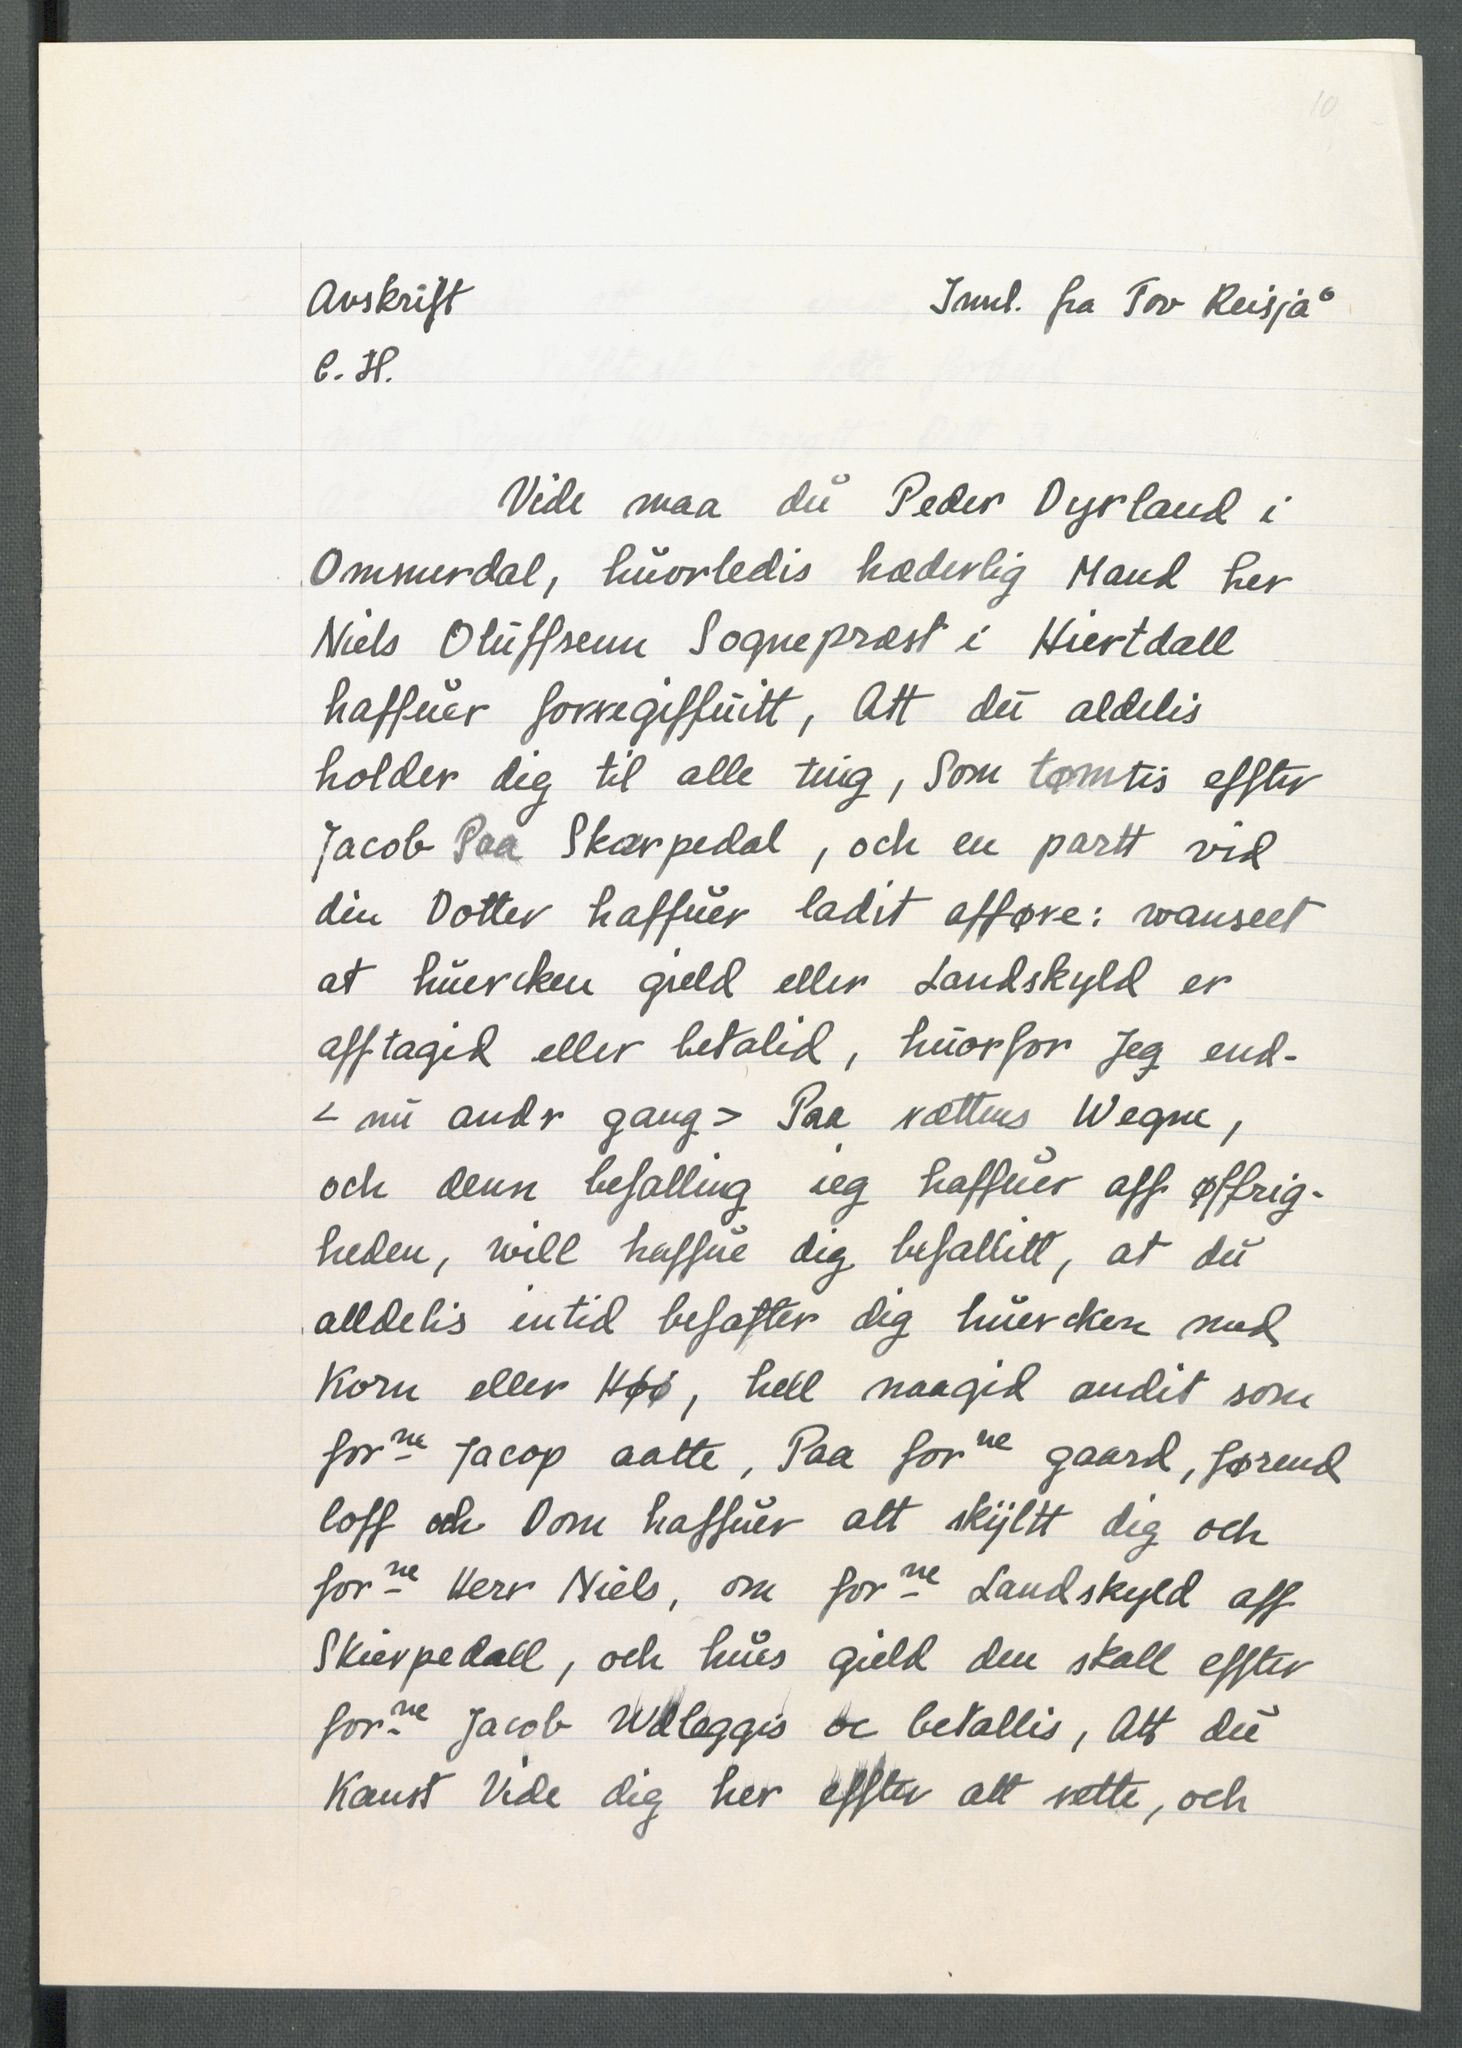 10
Avskrift Innl. fra Tov Reisjå
C. H.
Vide maa dŭ Peder Dyrland i
Ommerdal, hŭorledis hæderlig Mand her
Niels Olŭffsenn Sognepræst i Hiertdall
haffŭer forregiffŭitt, Att dŭ aldelis
holder dig til alle ting, Som tømtis effter
Jacob Paa Skærpedal, och en partt vid
din Dotter haffŭer ladit afføre: wanseet
at hŭercken gield eller Landskyld er
afftagid eller betalid, hŭorfor Jeg end-
< nŭ andr gang > Paa rættens Wegne,
och denn befalling ieg haffŭer aff øffrig-
heden, will haffŭe dig befallitt, at dŭ
alldelis intid befatter dig hŭercken med
Korn eller Høø, hell naagid andit som
forne Jacop aatte, Paa forne gaard, førend
loff och Dom haffŭer att skÿltt dig och
forne Herr Niels, om forne Landskyld aff
Skierpedall, och hŭes gield den skall effter
forne Jacob Wdleggis oc betallis, Att dŭ
Kanst Vide dig her effter att rette, och